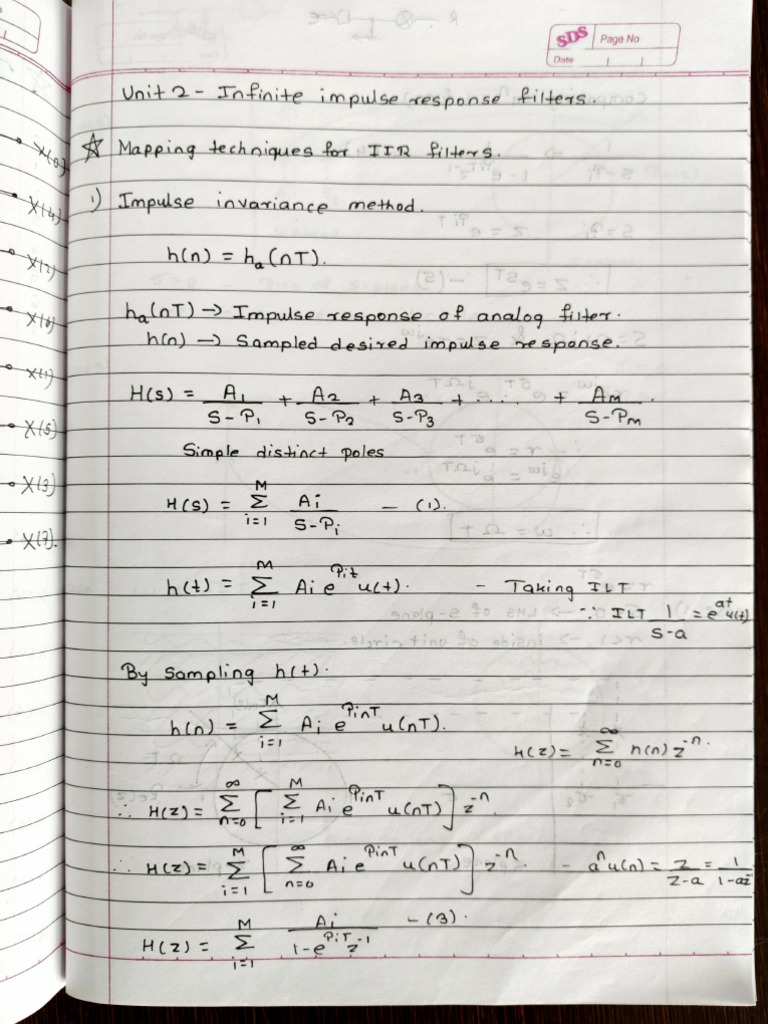 SDS Page No
Date
Unit 2 - Infinite impulse response filters.
☆ Mapping techniques for IIR filters.
1) Impulse invariance method.
h(n) = hₐ(nT).
hₐ(nT) → Impulse response of analog filter.
h(n) → Sampled desired impulse response.
H(s) = A₁/(S-P₁) + A₂/(S-P₂) + A₃/(S-P₃) + .... + A_M/(S-P_M).
Simple distinct poles
H(s) = Σ_{i=1}^{M} Ai/(S-Pi) — (1).
h(t) = Σ_{i=1}^{M} Ai e^{Pit} u(t). - Taking ILT
∵ ILT 1/(s-a) = e^{at} u(t)
By sampling h(t).
h(n) = Σ_{i=1}^{M} Ai e^{PinT} u(nT).
H(z) = Σ_{n=0}^{∞} h(n) z^{-n}.
∴ H(z) = Σ_{n=0}^{∞} [ Σ_{i=1}^{M} Ai e^{PinT} u(nT) ] z^{-n}.
∴ H(z) = Σ_{i=1}^{M} [ Σ_{n=0}^{∞} Ai e^{PinT} u(nT) ] z^{-n}. - aⁿu(n) = z/(z-a) = 1/(1-az^{-1})
H(z) = Σ_{i=1}^{M} Ai/(1-e^{PiT} z^{-1}) — (3).
X(0)
X(4)
X(2)
X(6)
X(1)
X(5)
X(3)
X(7).